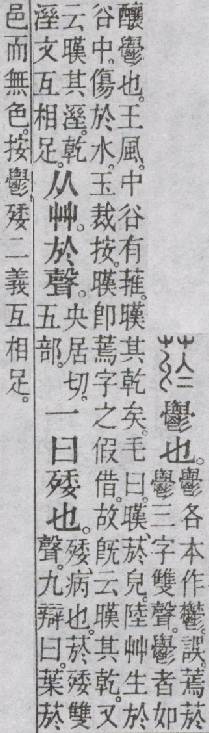 鬱也。鬱各本作鬱。誤。蔫菸
鬱三字雙聲。鬱者如
釀鬱也。王風。中谷有蓷。暵其乾矣。毛曰。暵菸皃。陸艸生於
谷中。傷於水。玉裁按。暵卽蔫字之假借。故旣云暵其乾。又
云暵其溼。乾溼文互相足。从艸。於聲。央居切。五部。一曰㱱也。㱱病也。菸㱱雙聲。九辯曰。葉菸
邑而無色。按鬱㱱二義互相足。